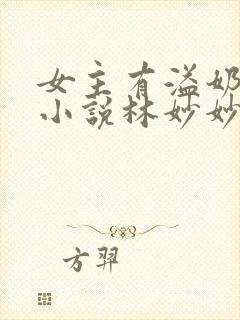 女主有溢奶
小说林妙妙
方羿